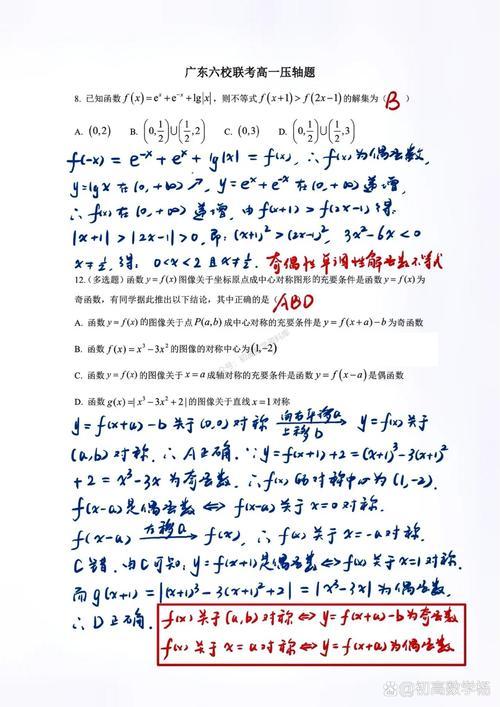 广东六校联考高一压轴题
8. 已知函数 f(x)=eˣ+e⁻ˣ+lg|x|，则不等式 f(x+1)>f(2x-1) 的解集为（ B ）
A. (0,2)    B. (0,1/2)∪(1/2,2)    C. (0,3)    D. (0,1/2)∪(1/2,3)
f(-x) = e⁻ˣ + eˣ + lg|x| = f(x), ∴ f(x)为偶函数,
y=lgx 在(0,+∞)↗, y=eˣ+e⁻ˣ 在(0,+∞) 递增,
∴ f(x)在(0,+∞) 递增, 由 f(x+1) > f(2x-1) 得:
|x+1| > |2x-1| > 0, 即: (x+1)² > (2x-1)², 3x²-6x<0
x≠1/2, 得: 0<x<2 且 x≠1/2. 奇偶性单调性解函数不等式
12.（多选题）函数 y=f(x) 图像关于坐标原点成中心对称图形的充要条件是函数 y=f(x) 为
奇函数，有同学据此推出以下结论，其中正确的是（ ABD
A. 函数 y=f(x) 的图像关于点 P(a,b) 成中心对称的充要条件是 y=f(x+a)-b 为奇函数
B. 函数 f(x)=x³-3x² 的图像的对称中心为 (1,-2)
C. 函数 y=f(x) 的图像关于 x=a 成轴对称的充要条件是函数 y=f(x-a) 是偶函数
D. 函数 g(x)=|x³-3x²+2| 的图像关于直线 x=1 对称
y=f(x+a)-b 关于(0,0)对称 向右平移a 上移b → y=f(x)关于
(a,b)对称. ∴ A正确. ∵ y=f(x+1)+2=(x+1)³-3(x+1)²
+2 = x³-3x 为奇函数. ∴ f(x)的对称中心为(1,-2).
f(x-a)是偶函数 ⇔ f(x-a)关于 x=0对称.
f(x-a) 左移a → f(x), ∴ f(x) 关于 x=-a对称.
C错. 由C可知: y=f(x+1)是偶函数 ⇔ f(x)关于x=1对称.
而 g(x+1) = |(x+1)³-3(x+1)²+2| = |x³-3x| 为偶函数,
∴ D正确.
f(x)关于(a,b)对称 ⇔ y=f(x+a)-b为奇函数
f(x)关于 x=a对称 ⇔ y=f(x+a)为偶函数
@初高数学杨